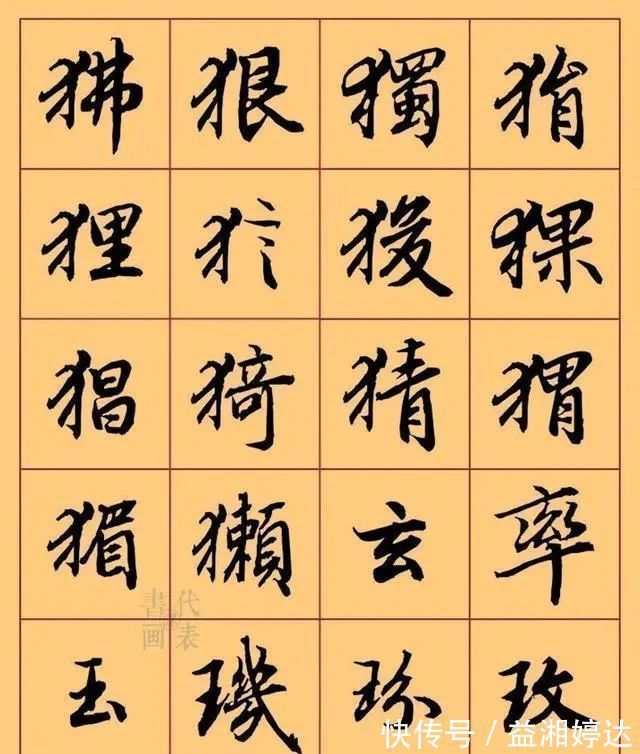 狒 狠 獨 狷
狸 狻 猓
猖 猗 猜 猬
猸 獺 玄 率
代表
書画
玉 璣 玫
快传号／益湘婷达